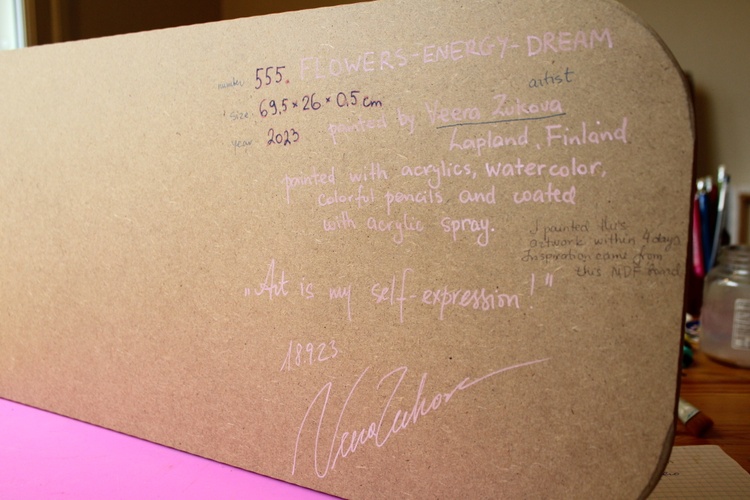 number 555. FLOWERS-ENERGY-DREAM
artist
size 69,5 × 26 × 0,5 cm
painted by Veera Zukova
year 2023
Lapland, Finland
painted with acrylics, watercolor,
colorful pencils and coated
with acrylic spray.
I painted this
artwork within 4 days
Inspiration came from
this MDF
„Art is my self-expression!"
18.9.23
Veera Zukova